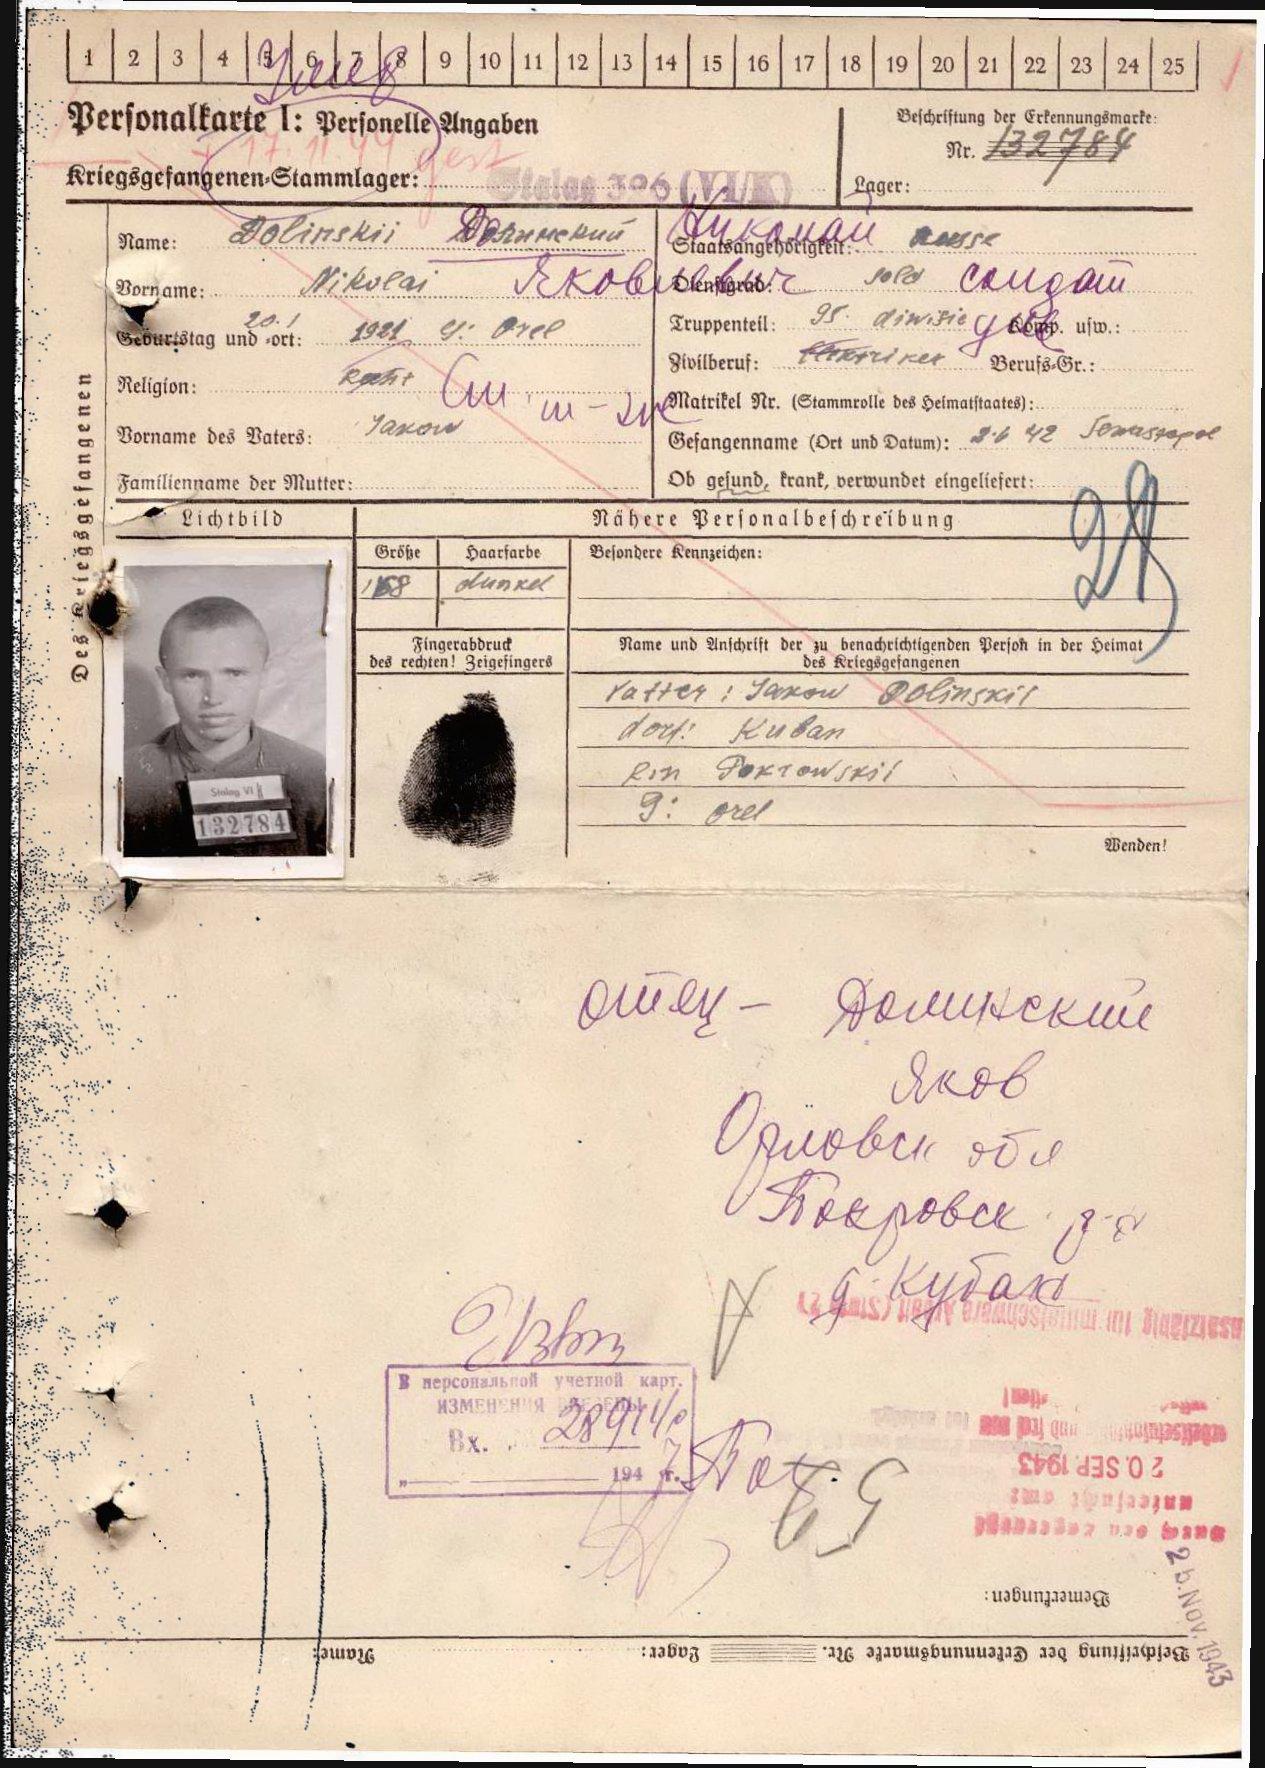 1 2 3 4 5 6 7 8 9 10 11 12 13 14 15 16 17 18 19 20 21 22 23 24 25
Personalkarte I: Personelle Angaben
Beschriftung der Erkennungsmarke:
Nr. 132784
17. 11. 44 gest
Kriegsgefangenen-Stammlager: Stalag 326 (VI/K)
Lager:
Des Kriegsgefangenen
Name: Dolinskii Долинский
Николай
Staatsangehörigkeit: russe
Vorname: Nikolai Яковлевич
Dienstgrad: sold солдат
Geburtstag und -ort: 20.1 1921 G: Orel
Truppenteil: 95. diwisie Komp. usw.:
Zivilberuf: Elektriker Berufs-Gr.:
Religion:
Matrikel Nr. (Stammrolle des Heimatstaates):
Vorname des Vaters: Jakow
Gefangenname (Ort und Datum): 2.6 42 Sewastopol
Familienname der Mutter:
Ob gesund, krank, verwundet eingeliefert:
28
Lichtbild
Nähere Personalbeschreibung
Größe Haarfarbe
Besondere Kennzeichen:
168 dunkel
Fingerabdruck
des rechten! Zeigefingers
Name und Anschrift der zu benachrichtigenden Person in der Heimat
des Kriegsgefangenen
Vatter: Jakow Dolinskii
dorf: Kuban
Pokrowskii
G: Orel
Stalag VI K
132784
Wenden!
отец - Долинский
Яков
Орловск обл
Покровск р-н
д. Кубань
Einsatzfähig für mittelschwere Arbeit
В персональной учетной карт.
ИЗМЕНЕНИЯ ВНЕСЕНЫ
Вх.
" 1947 г.
20. SEP. 1943
untersucht am:
Durch den Lagerarzt
26. Nov. 1943
Bemerkungen:
Beschriftung der Erkennungsmarke Nr. Lager: Name: